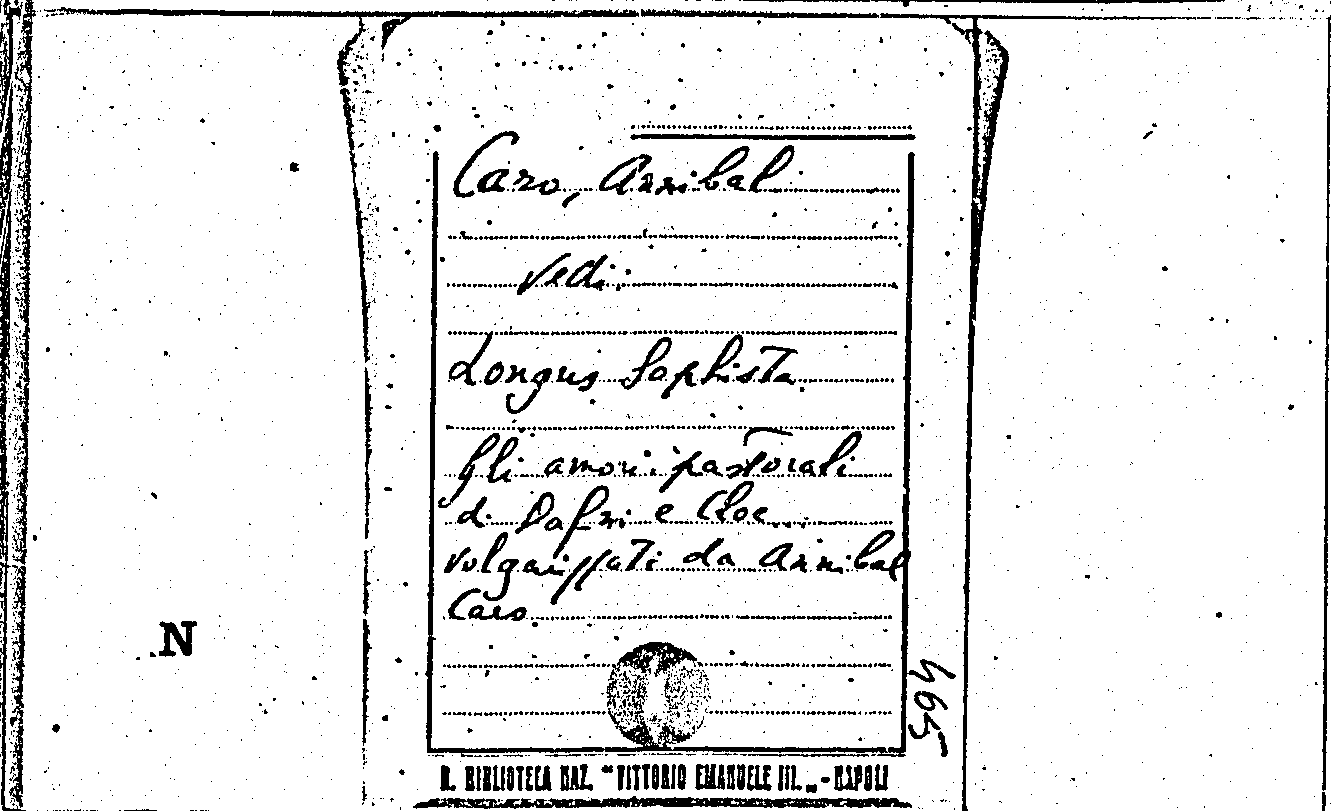 Caro, Annibal
Vedi:
Longus Sophista
Gli amori pastorali
di Dafni e Cloe
volgarizzati da Annibal
Caro.
N
465
R. BIBLIOTECA NAZ. "VITTORIO EMANUELE III" - NAPOLI